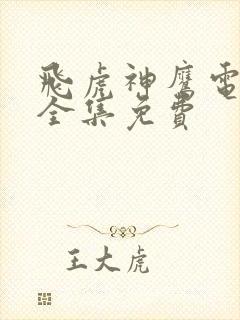 飛虎神鷹電
全集免費
王大虎